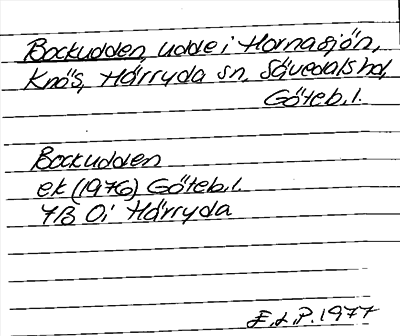 Bockudden, udde i Hornasjön,
Knös, Härryda sn, Sävedals hd,
Göteb. l.
Bockudden
ek (1976) Göteb. l.
7B 0i Härryda
E.L.P. 1977